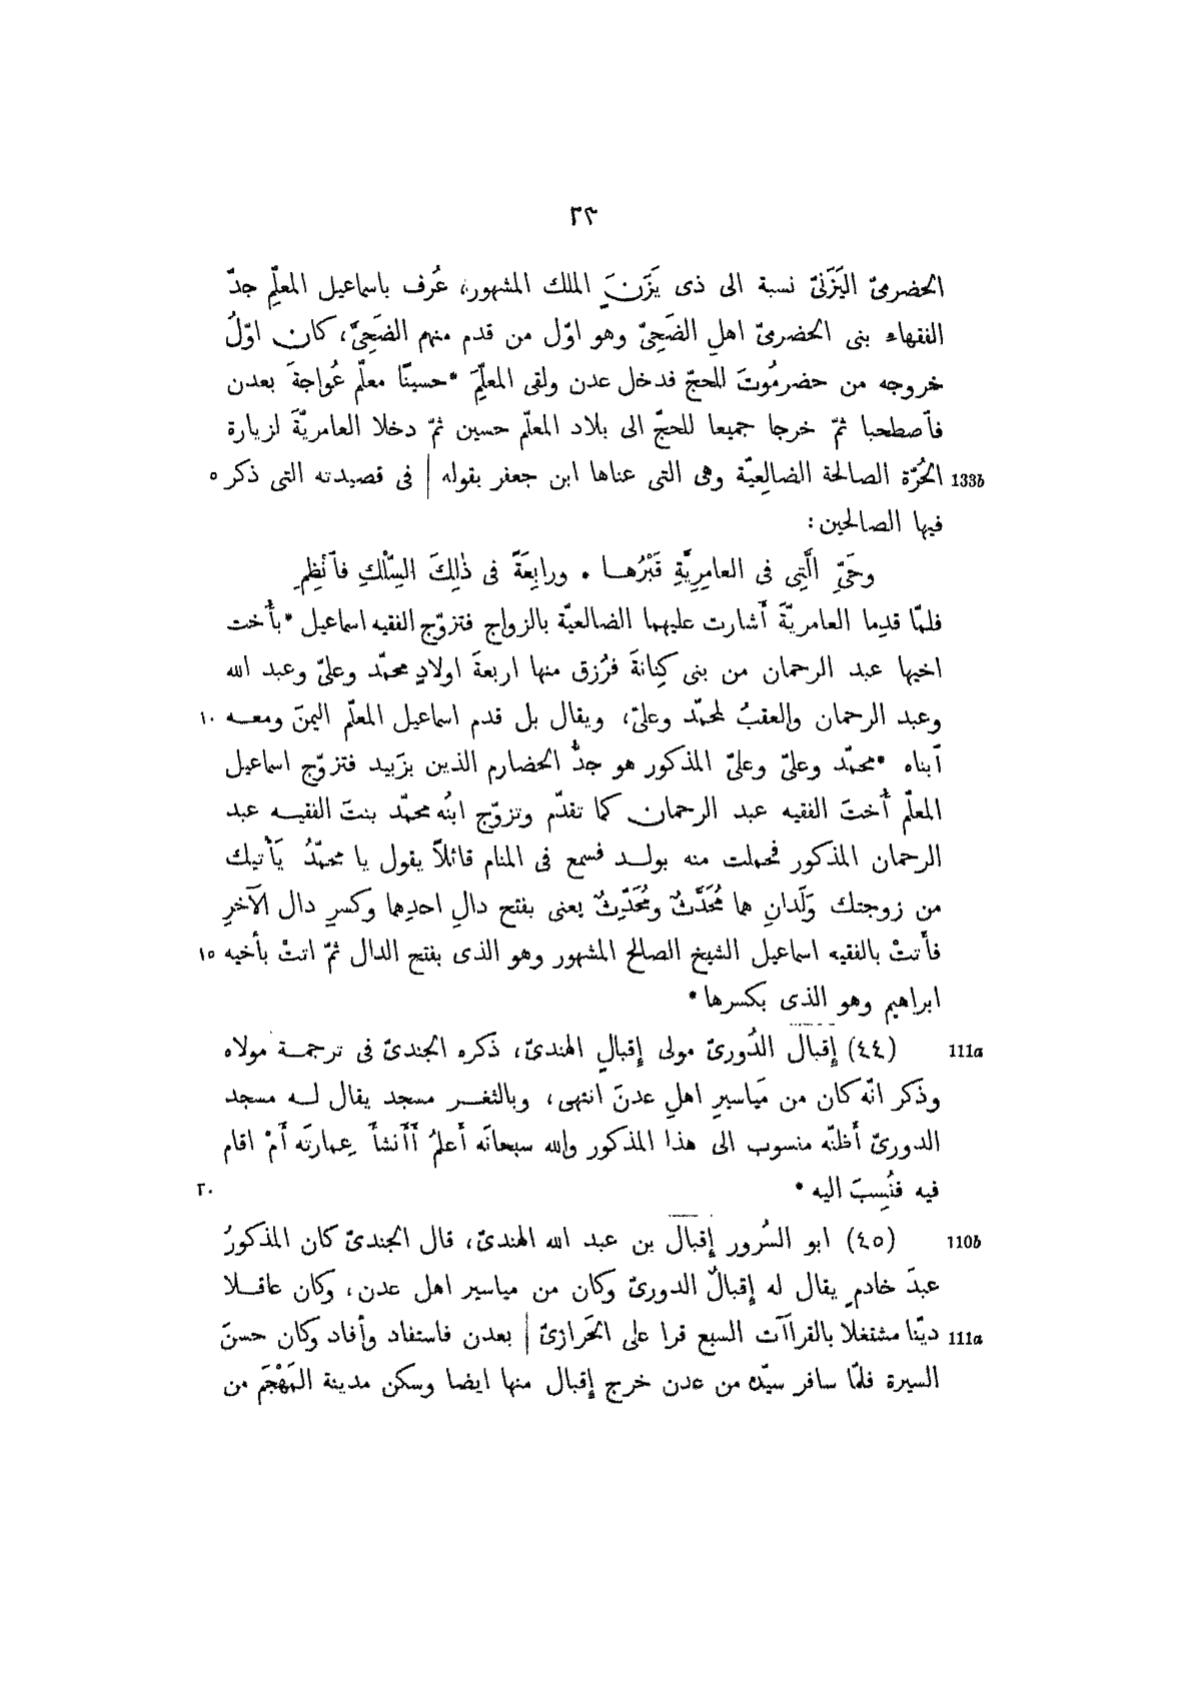 ٢٣
الحضرمىّ اليَزَنىّ نسبة الى ذى يَزَنَ الملك المشهور، عُرف باسماعيل المعلّم جدّ
الفقهاء بنى الحضرمىّ اهل الضَحِىّ وهو اوّل من قدم منهم الضَحِىَّ، كان اوّلُ
خروجه من حضرمُوتَ للحجّ فدخل عدن ولقى المعلّمَ *حسينًا معلّم عُواجةَ بعدن
فاصطحبا ثمّ خرجا جميعا للحجّ الى بلاد المعلّم حسين ثمّ دخلا العامريّةَ لزيارة
133b الحُرّة الصالحة الضالعيّة وهى التى عناها ابن جعفر بقوله | فى قصيدته التى ذكر ٥
فيها الصالحين:
وحَىِّ الَّتِى فى العامِرِيَّةِ قَبْرُهـا • ورابِعَةً فى ذٰلِكَ السِّلْكِ فٱنْظِمِ
فلمّا قدِما العامريّةَ أشارت عليهما الضالعيّة بالزواج فتزوّج الفقيه اسماعيل *بأُخت
اخيها عبد الرحمان من بنى كِنانةَ فرُزق منها اربعةَ اولادٍ محمّد وعلىّ وعبد الله
وعبد الرحمان والعقبُ لمحمّد وعلىّ، ويقال بل قدم اسماعيل المعلّم اليمنَ ومعـه ١٠
ٱبناه *محمّد وعلىّ وعلىّ المذكور هو جدُّ الحضارم الذين بزَبيد فتزوّج اسماعيل
المعلّم أُختَ الفقيه عبد الرحمان كما تقدّم وتزوّج ابنُه محمّد بنتَ الفقيـه عبد
الرحمان المذكور فحملت منه بولـد فسمع فى المنام قائلاً يقول يا محمّدُ يَأتيك
من زوجتك وَلَدانِ هما مُحَدَّثٌ ومُحَدِّثٌ يعنى بفتح دالِ احدِهما وكسرِ دال الآخرِ
فأَتتْ بالفقيه اسماعيل الشيخ الصالح المشهور وهو الذى بفتح الدال ثمّ اتتْ بأخيه ١٥
ابراهيم وهو الذى بكسرها*
111a (٤٤) إقبال الدُورىّ مولى إقبالٍ الهندىّ، ذكره الجندىّ فى ترجمـة مولاه
وذكر انّه كان من مَياسيرِ اهلِ عدنَ انتهى، وبالثغـر مسجد يقال لـه مسجد
الدورىّ أظنّه منسوب الى هذا المذكور والله سبحانَه أعلمُ أأنشأَ عِمارتَه أَمْ اقام
فيه فنُسِبَ اليه • ٢٠
110b (٤٥) ابو السُرور إقبال بن عبد الله الهندىّ، قال الجندىّ كان المذكورُ
عبدَ خادمٍ يقال له إقبالٌ الدورىّ وكان من مياسير اهل عدن، وكان عاقـلا
111a ديّنا مشتغلا بالقراآت السبع قرا على الحَرازىّ | بعدن فاستفاد وأفاد وكان حسنَ
السيرة فلمّا سافر سيّده من عدن خرج إقبال منها ايضا وسكن مدينة المَهْجَم من